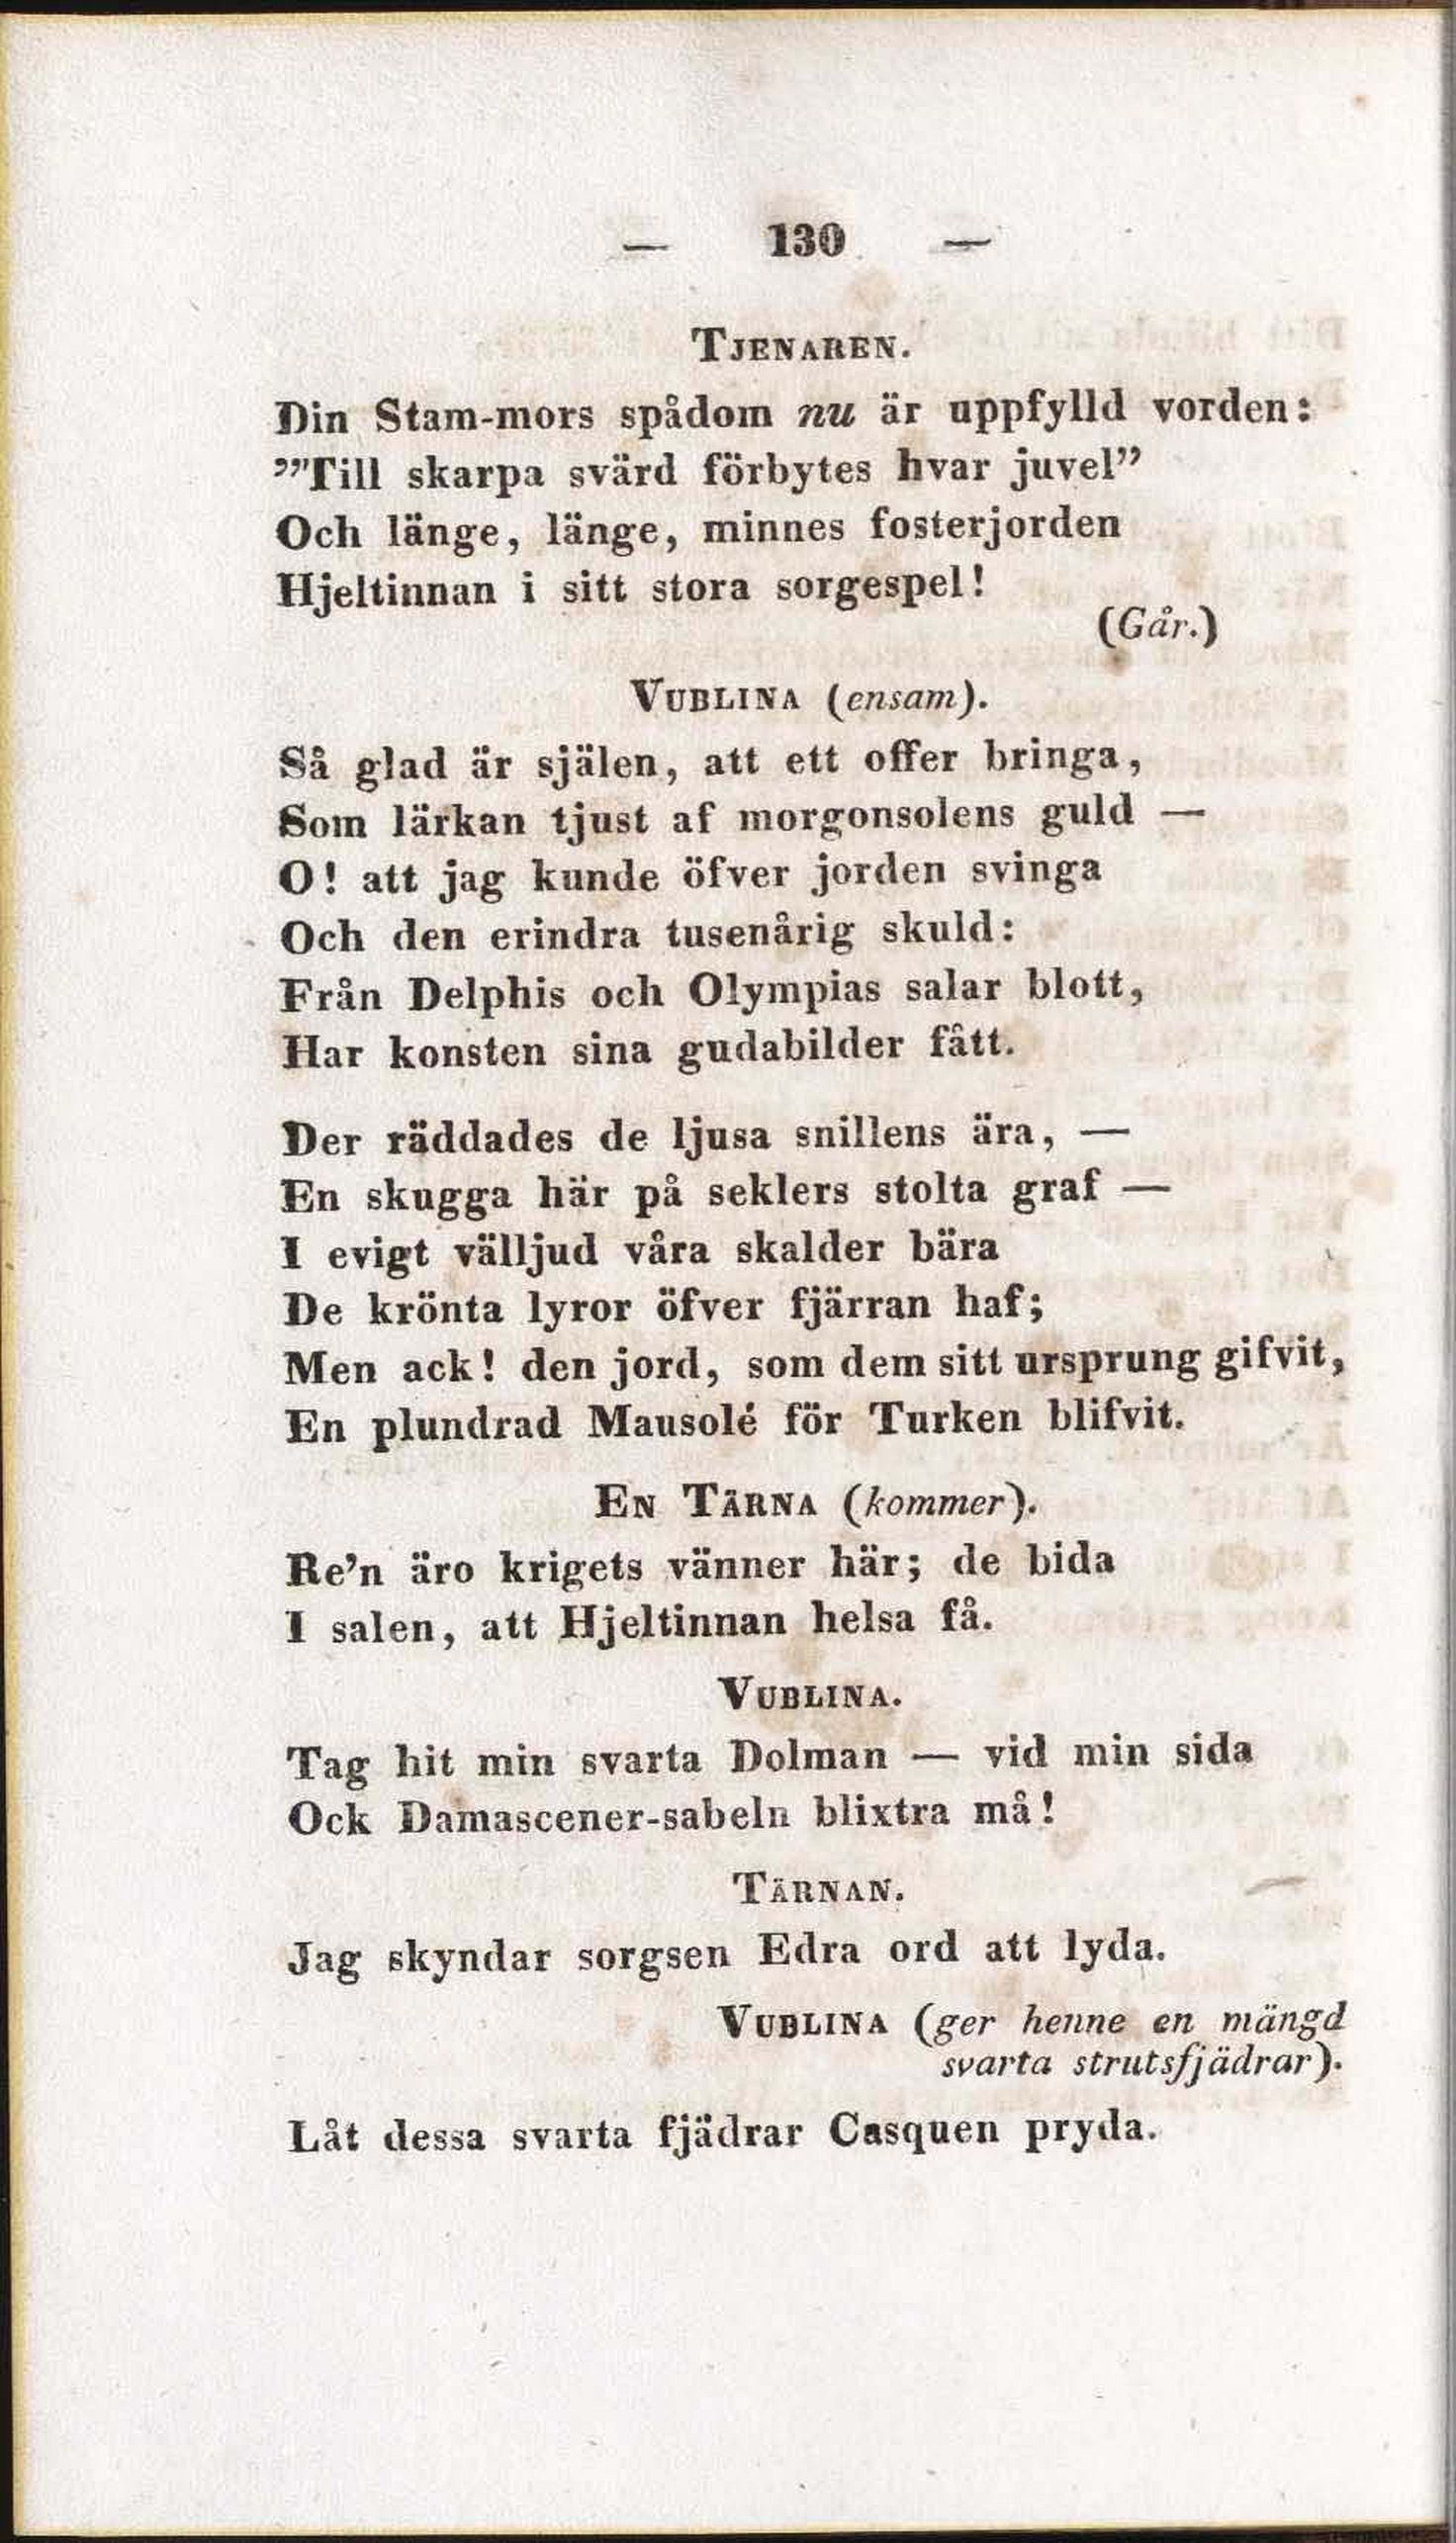 — 130 —
TJENAREN.
Din Stam-mors spådom nu är uppfylld vorden:
”Till skarpa svärd förbytes hvar juvel”
Och länge, länge, minnes fosterjorden
Hjeltinnan i sitt stora sorgespel!
(Går.)
VUBLINA (ensam).
Så glad är själen, att ett offer bringa,
Som lärkan tjust af morgonsolens guld —
O! att jag kunde öfver jorden svinga
Och den erindra tusenårig skuld:
Från Delphis och Olympias salar blott,
Har konsten sina gudabilder fått.
Der räddades de ljusa snillens ära, —
En skugga här på seklers stolta graf —
I evigt välljud våra skalder bära
De krönta lyror öfver fjärran haf;
Men ack! den jord, som dem sitt ursprung gifvit,
En plundrad Mausolé för Turken blifvit.
EN TÄRNA (kommer).
Re’n äro krigets vänner här; de bida
I salen, att Hjeltinnan helsa få.
VUBLINA.
Tag hit min svarta Dolman — vid min sida
Ock Damascener-sabeln blixtra må!
TÄRNAN.
Jag skyndar sorgsen Edra ord att lyda.
VUBLINA (ger henne en mängd
svarta strutsfjädrar).
Låt dessa svarta fjädrar Casquen pryda.